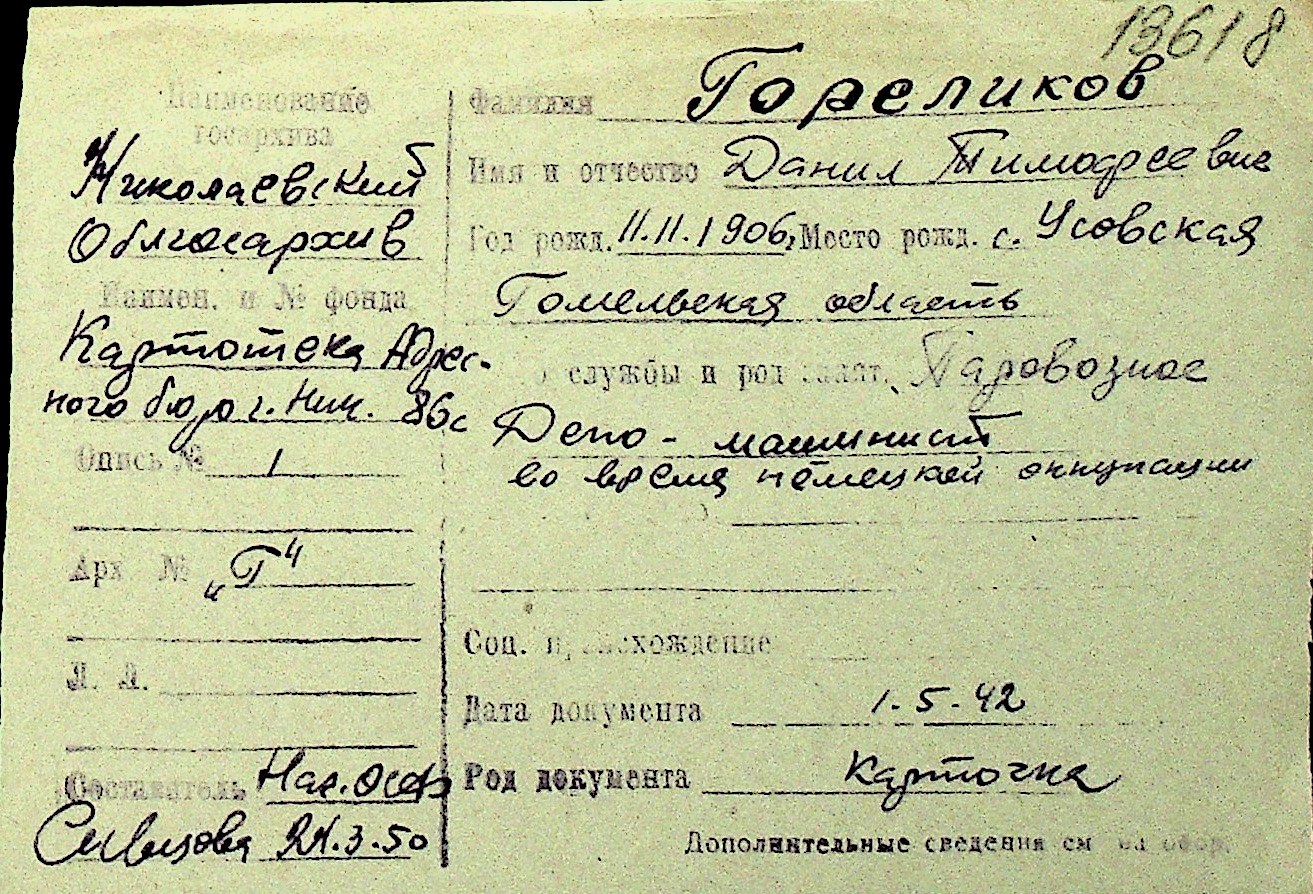 13618
Наименование
госархива
Николаевский
Облгосархив
Наимен. и № фонда
Картотека Адрес-
ного бюро г. Ник. 86с
Опись № 1
Арх № „Г"
Л. Л.
Составитель Нач. ОСФ
24.3.50
Фамилия Гореликов
Имя и отчество Данил Тимофеевич
Год рожд. 11.11.1906, Место рожд. с. Усовская
Гомельская область
службы и род занят. Паровозное
Депо - машинист
во время немецкой оккупации
Соц. происхождение
Дата документа 1.5.42
Род документа Карточка
Дополнительные сведения см на обор.